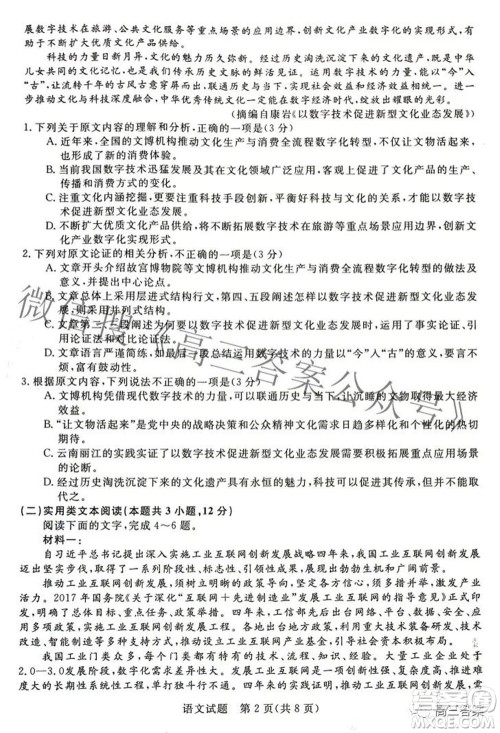 展数字技术在旅游、公共文化服务等重点场景的应用边界，创新文化产业数字化的实现形式，有
助于不断扩大优质文化产品供给。
科技的力量日新月异，文化的魅力历久弥新。经过历史淘洗沉淀下来的文化遗产，既是中华
儿女共同的文化记忆，也是具有永恒价值的历史文脉的鲜活见证。运用数字技术的力量，能以“今”入
“古”，让流转千年的古风古意穿屏而出，使收藏在博物馆里的文物、书写在古籍里的文字活起来。进一
步推动文化与科技深度融合，中华优秀传统文化一定能在数字经济时代，绽放出更加耀眼的光彩。
（摘编自康岩《以数字技术促进新型文化业态发展》）
1. 下列关于原文内容的理解和分析，正确的一项是（3分）
A. 近年来，全国的文博机构推动文化生产与消费全流程数字化转型，不仅让文物“活”起来，也形
成了新的消费体验。
B. 当前我国数字技术迅猛发展及其在文化领域广泛应用，丰富了文化产品的表现形式，创新了文化产品的
传播和消费方式。
C. 注重文化内涵挖掘，更要注重科技手段创新，平衡好科技与文化的关系，才能以数字技术
促进新型文化业态发展。
D. 不断扩大优质文化产品供给，将不断拓展数字技术在旅游等重点场景的应用边界，创新文
化产业数字化实现形式。
2. 下列对原文论证的相关分析，不正确的一项是（3分）
A. 文章开头介绍故宫博物院等文博机构推动文化生产与消费全流程数字化转型的做法及
意义，并提出中心论点。
B. 文章总体上采用层进式结构行文，第四、五段阐述怎样促进以数字技术促进新型文化业态发展。
C. 文章第二、三段阐述为何要以数字技术促进新型文化业态发展，主要运用了举例论证、引
用论证和对比论证。
D. 文章语言严谨简练，如最后一段，总结运用数字技术的力量以“今”入“古”的意义，富有
文采。
3. 根据原文内容，下列说法不正确的一项是（3分）
A. 文博机构凭借现代数字技术的力量，可以联通历史与当下，让沉睡的文物取得最大经济
效益。
B. “让文物活起来”是党中央的战略决策和公众精神文化需求日趋多样化和个性化的大势所
趋。
C. 云南丽江的实践证实了以数字技术促进新型文化业态发展具有重要意义。
D. 经过历史淘洗沉淀下来的文化遗产具有永恒的魅力，但也需要数字技术促进其创新发展。
（二）实用类文本阅读（本题共3小题，12分）
阅读下面的文字，完成4～6题。
材料一：
自习近平总书记提出深入实施工业互联网创新发展战略四年来，我国工业互联网创新发展
迈出坚实步伐，探索形成一系列阶段性、标志性、引领性的发展成果。
推动工业互联网创新发展，须树立明确的政策导向，凝聚多方共识和多措并举，激发产业活
力。2017年国务院《关于深化“互联网＋先进制造业”发展工业互联网的指导意见》正式印发，
开启了我国工业互联网创新发展的宏伟篇章。四年来，各地出台地方政策，利用重大技术装备研发、技术
改造、智能制造等多种方式，支持工业互联网产业发展，引导社会资本积极布局。
我国工业门类众多，每个门类都有特有的流程、知识、组织，大量工业企业还处于
2.0—3.0发展阶段，推动工业互联网发展是一项创新性强、复杂度高、推进难
度大的长期性系统性工程，既要克服短期见效的思想，也要保持战略定力，避免跟风炒作，需
语文试题　第2页（共8页）
微信搜《高三答案公众号》
高三答案